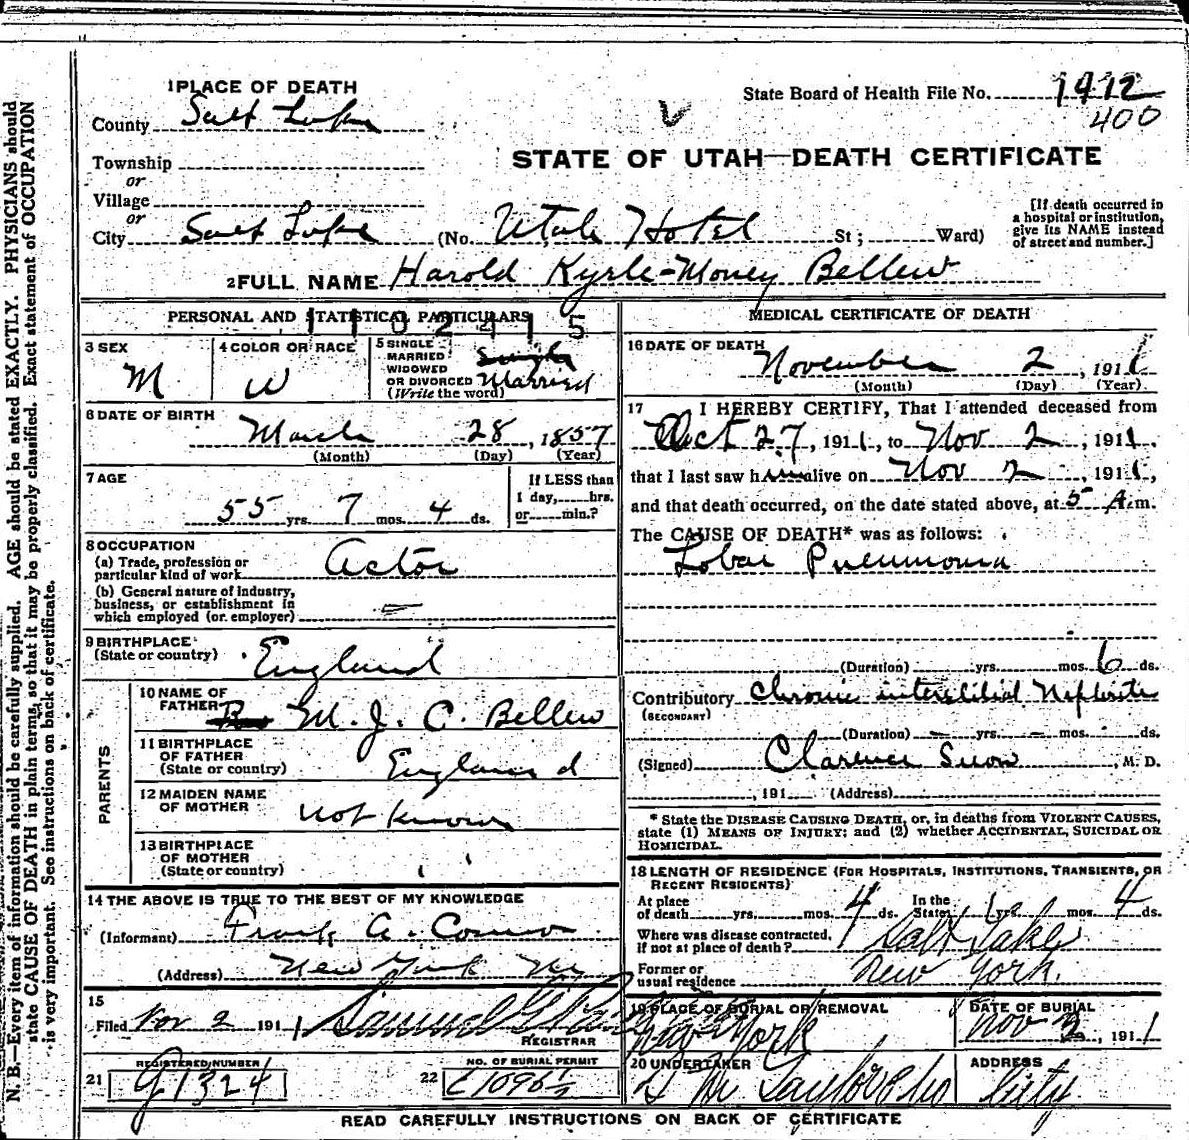 1 PLACE OF DEATH
State Board of Health File No. 1912
400
County Salt Lake
STATE OF UTAH—DEATH CERTIFICATE
Township
or
Village
or
City Salt Lake (No. Utah Hotel St; Ward)
[If death occurred in
a hospital or institution,
give its NAME instead
of street and number.]
2 FULL NAME Harold Kyrle-Money Bellew
PERSONAL AND STATISTICAL PARTICULARS
1102415
3 SEX
M
4 COLOR OR RACE
W
5 SINGLE
MARRIED
WIDOWED
OR DIVORCED
(Write the word)
Single
Married
6 DATE OF BIRTH
March 28, 1857
(Month) (Day) (Year)
7 AGE
55 yrs. 7 mos. 4 ds.
If LESS than
1 day, hrs.
or min.?
8 OCCUPATION
(a) Trade, profession or
particular kind of work Actor
(b) General nature of industry,
business, or establishment in
which employed (or employer)
9 BIRTHPLACE
(State or country) England
PARENTS
10 NAME OF
FATHER M. J. C. Bellew
11 BIRTHPLACE
OF FATHER
(State or country) England
12 MAIDEN NAME
OF MOTHER not known
13 BIRTHPLACE
OF MOTHER
(State or country) " "
14 THE ABOVE IS TRUE TO THE BEST OF MY KNOWLEDGE
(Informant) Frank A. Connor
(Address) New York NY
15
Filed Nov 2 1911 Samuel G.
REGISTRAR
REGISTERED NUMBER
21 G1324
NO. OF BURIAL PERMIT
22 C1096½
MEDICAL CERTIFICATE OF DEATH
16 DATE OF DEATH
November 2, 1911
(Month) (Day) (Year)
17 I HEREBY CERTIFY, That I attended deceased from
Oct 27, 1911, to Nov 2, 1911,
that I last saw him alive on Nov 2, 1911,
and that death occurred, on the date stated above, at 5 A.m.
The CAUSE OF DEATH* was as follows:
Lobar Pneumonia
(Duration) yrs. mos. 6 ds.
Contributory Chronic interstitial Nephritis
(SECONDARY)
(Duration) – yrs. – mos. ds.
(Signed) Clarence Snow, M. D.
, 191 (Address)
* State the DISEASE CAUSING DEATH, or, in deaths from VIOLENT CAUSES,
state (1) MEANS OF INJURY; and (2) whether ACCIDENTAL, SUICIDAL OR
HOMICIDAL.
18 LENGTH OF RESIDENCE (FOR HOSPITALS, INSTITUTIONS, TRANSIENTS, OR
RECENT RESIDENTS)
At place
of death yrs. mos. 4 ds. In the
State yrs. mos. 4 ds.
Where was disease contracted,
if not at place of death? Salt Lake
Former or
usual residence New York.
19 PLACE OF BURIAL OR REMOVAL
New York
DATE OF BURIAL
Nov 2, 1911
20 UNDERTAKER
ADDRESS
City
READ CAREFULLY INSTRUCTIONS ON BACK OF CERTIFICATE
N. B.—Every item of information should be carefully supplied. AGE should be stated EXACTLY. PHYSICIANS should
state CAUSE OF DEATH in plain terms, so that it may be properly classified. Exact statement of OCCUPATION
is very important. See instructions on back of certificate.